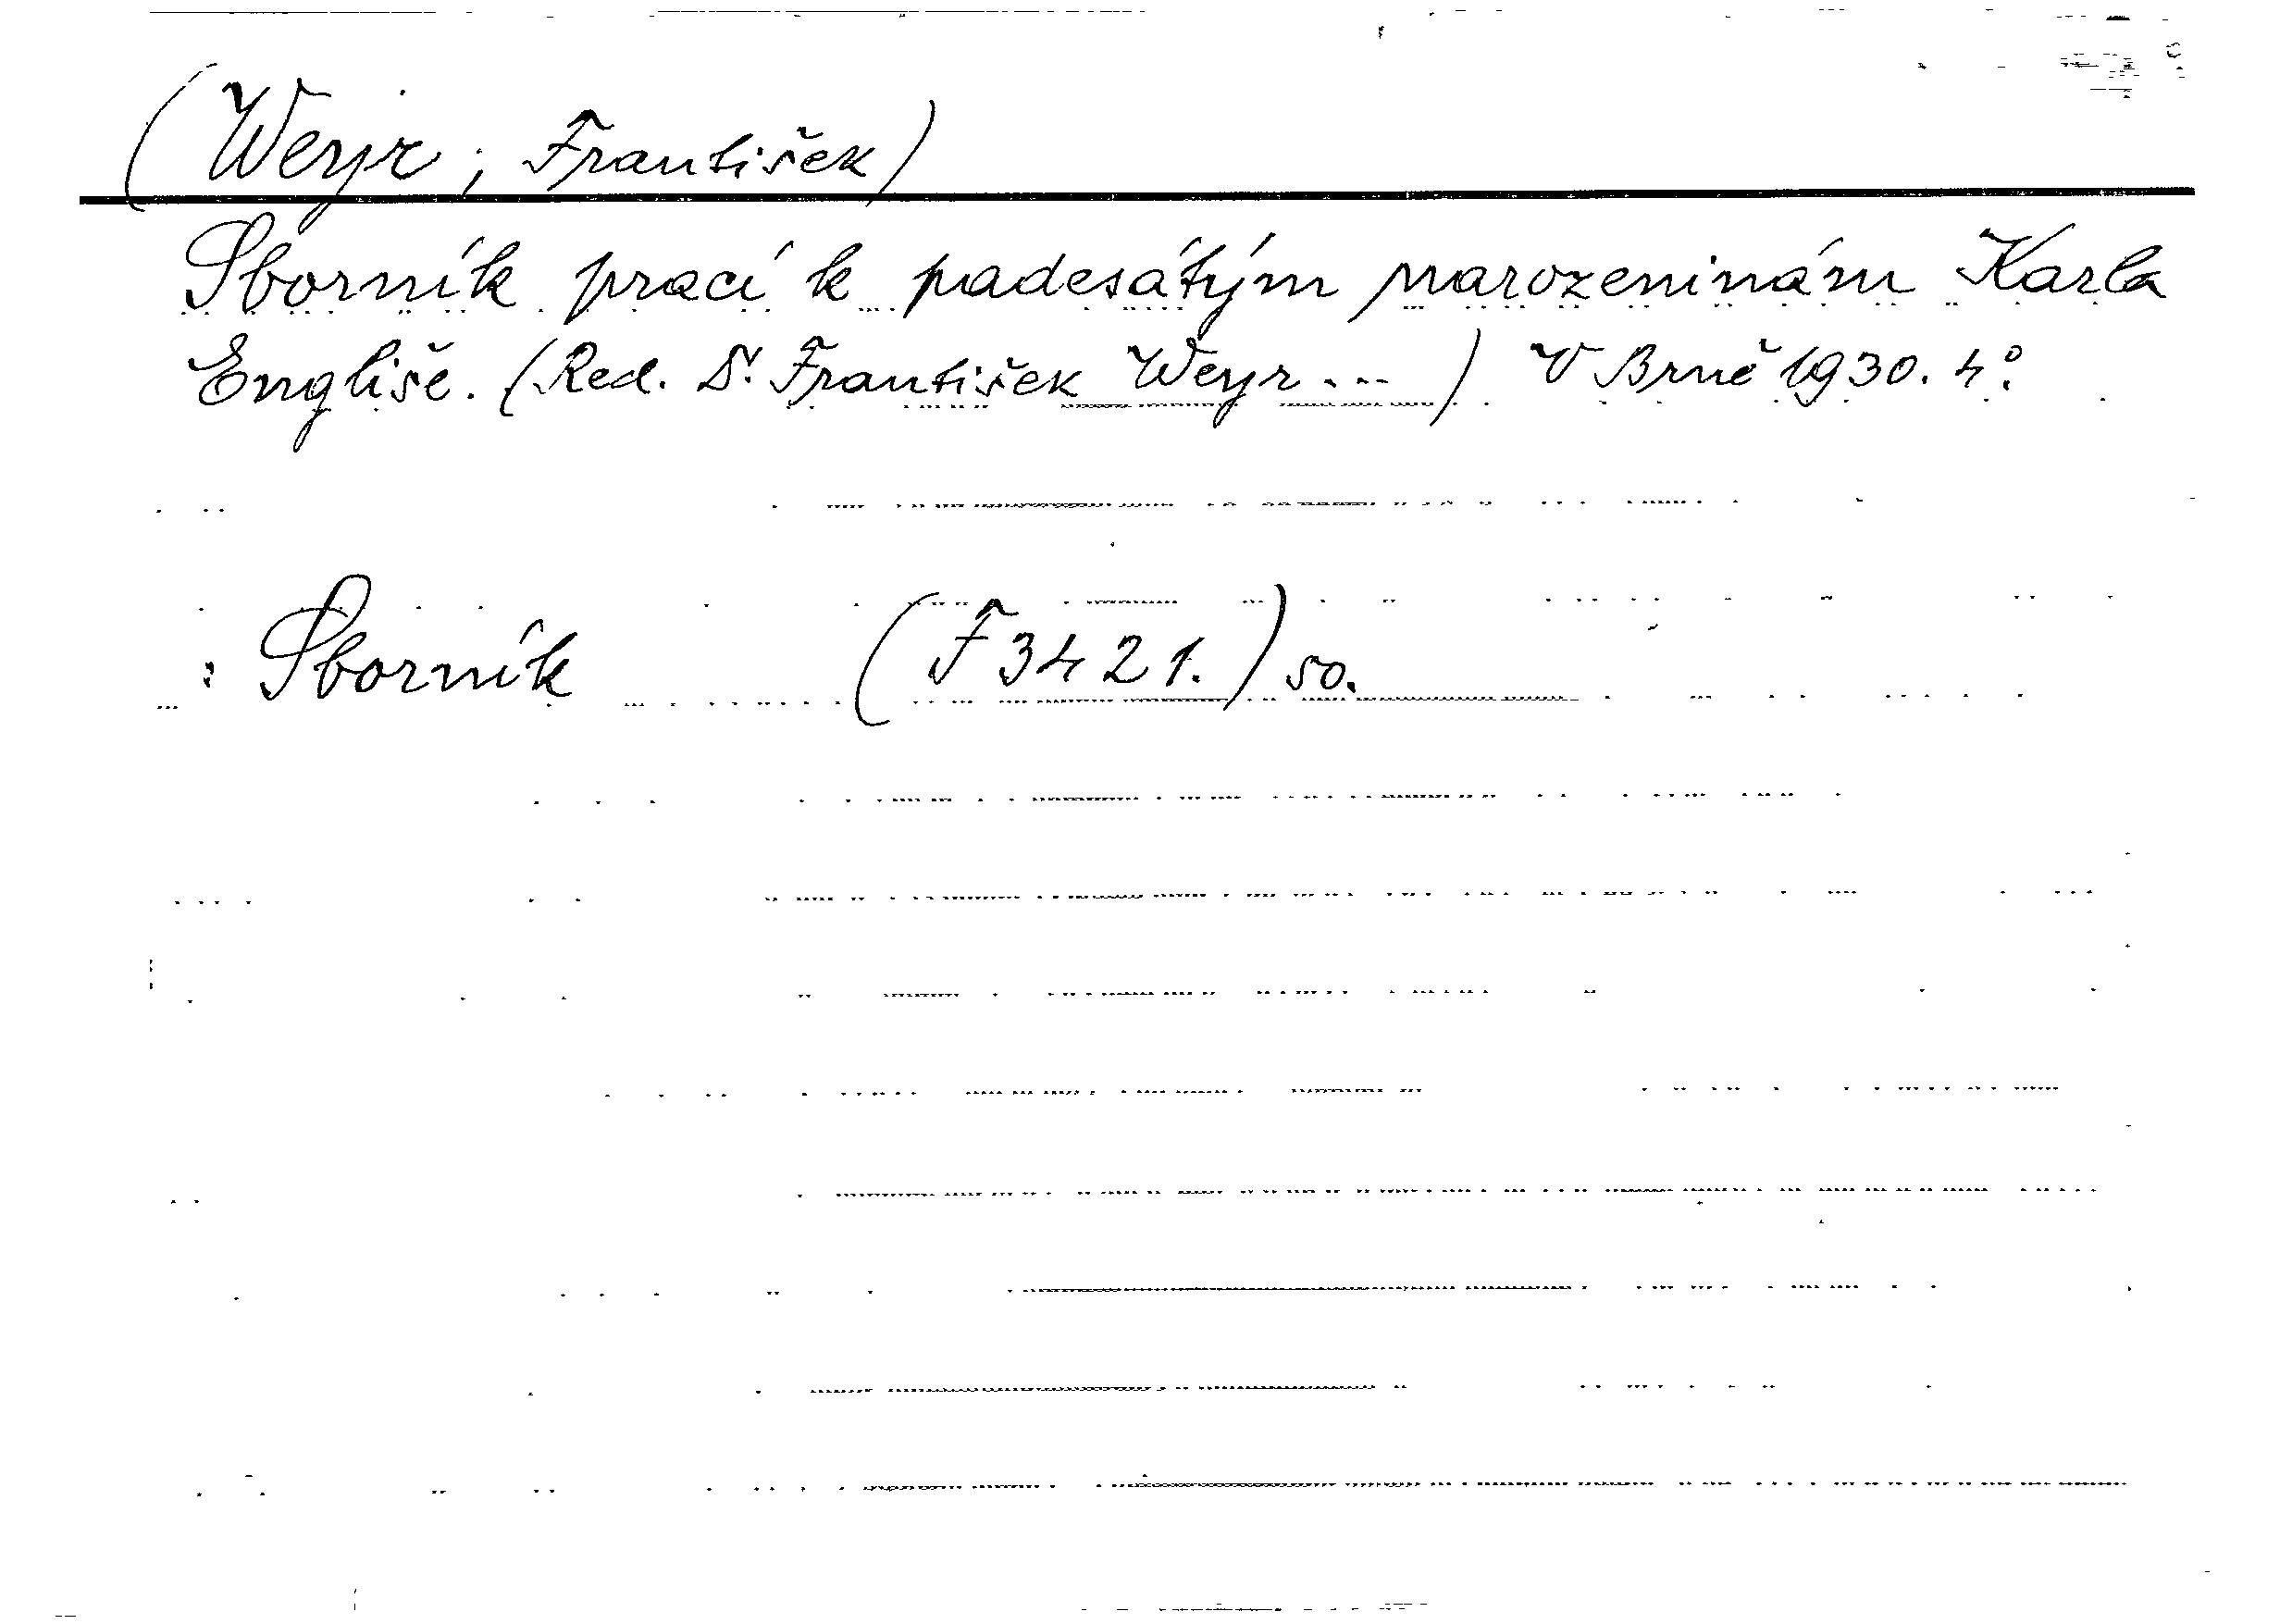 (Weyr, František)
Sborník prací k padesátým narozeninám Karla
Engliše. (Red. Dr. František Weyr...) V Brně 1930. 4°.
: Sborník (F 3421.) so.